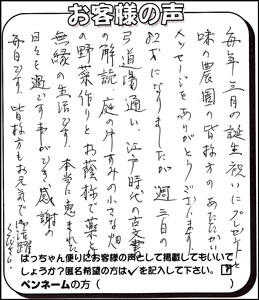 お客様の声
毎年三月の誕生祝いにプレゼントと
味の農園の皆様方のあたたかい
メッセージをありがとうございます。
82才になりましたが週三日の
弓道場通い、江戸時代の古文書
の解読、庭のすみの小さな畑
の野菜作りとお蔭様で薬と
無縁の生活です。本当に恵まれた
日々を過す事ができ、感謝の
毎日です。皆様方もお元気で御活躍
ください。
ばっちゃん便りにお客様の声として掲載してもいいで
しょうか?匿名希望の方は✓を記入して下さい。
ペンネームの方( )